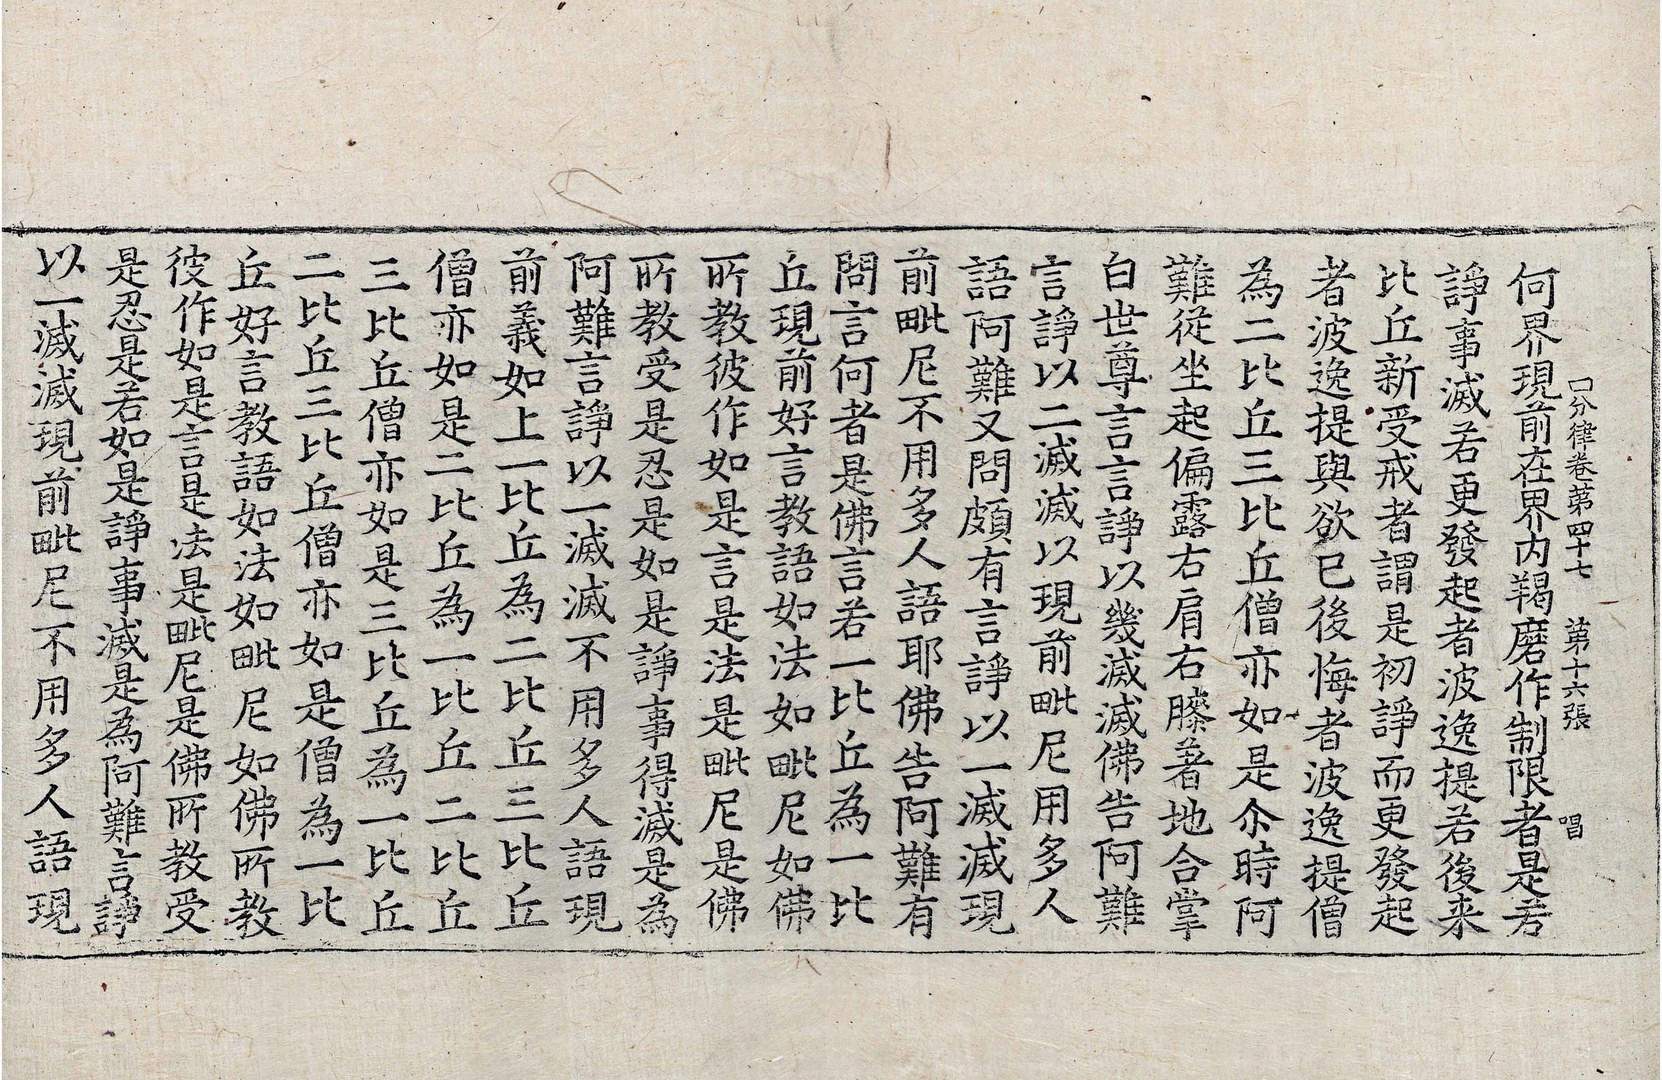 分律卷第四十七　第十六張　唱
何界現前在界內羯磨作制限者是若
諍事滅若更發起者波逸提若後来
比丘新受戒者謂是初諍而更發起
者波逸提與欲已後悔者波逸提僧
為二比丘三比丘僧亦如是尒時阿
難從坐起偏露右肩右膝著地合掌
白世尊言言諍以幾滅滅佛告阿難
言諍以二滅滅以現前毗尼用多人
語阿難又問頗有言諍以一滅滅現
前毗尼不用多人語耶佛告阿難有
問言何者是佛言若一比丘為一比
丘現前好言教語如法如毗尼如佛
所教彼作如是言是法是毗尼是佛
所教受是忍是如是諍事得滅是為
阿難言諍以一滅滅不用多人語現
前義如上一比丘為二比丘三比丘
僧亦如是二比丘為一比丘二比丘
三比丘僧亦如是三比丘為一比丘
二比丘三比丘僧亦如是僧為一比
丘好言教語如法如毗尼如佛所教
彼作如是言是法是毗尼是佛所教受
是忍是若如是諍事滅是為阿難言諍
以一滅滅現前毗尼不用多人語現